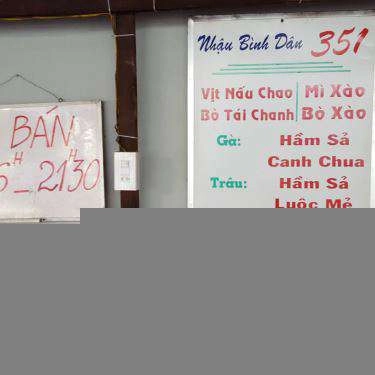 BÁN
H_21H30
Nhậu Bình Dân 351
Vịt Nấu Chao Mì Xào
Bò Tái Chanh Bò Xào
Gà: Hầm Sả
Canh Chua
Trâu: Hầm Sả
Luộc Mẻ